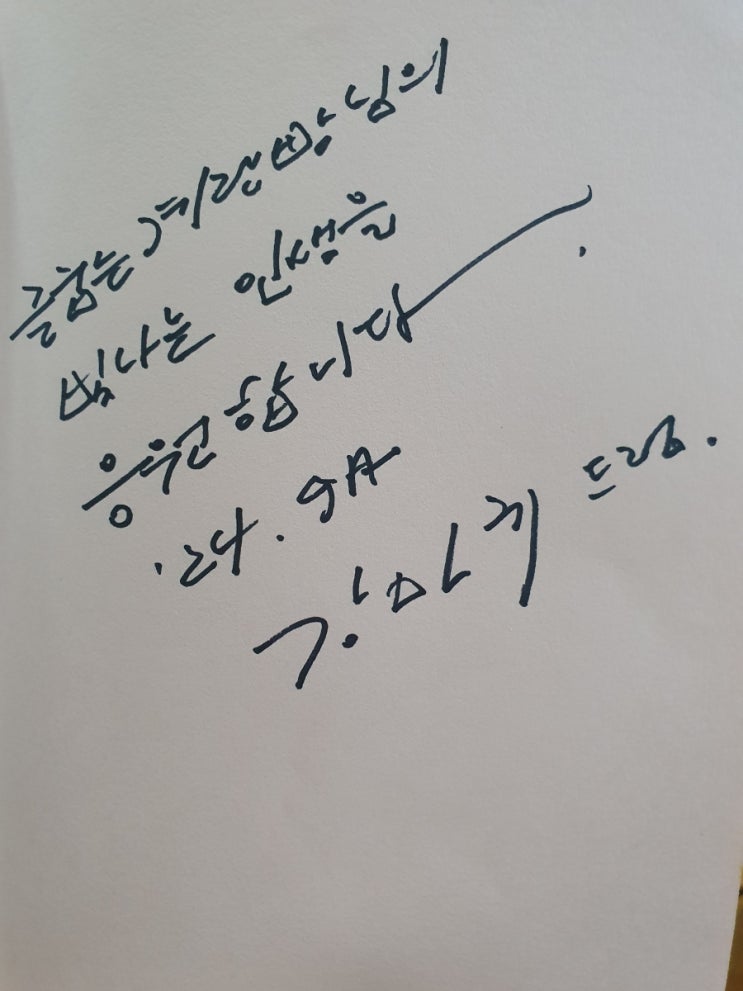 글쓰는 계란빵님의
빛나는 인생을
응원합니다.
'24. 9月
드림.